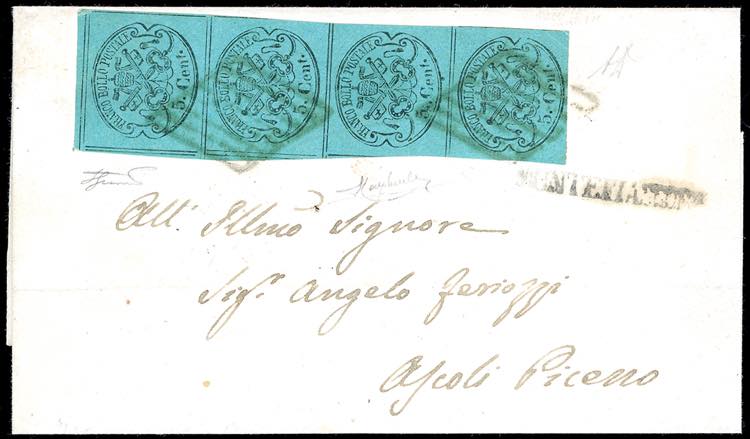 FRANCO BOLLO POSTALE 5 Cent. FRANCO BOLLO POSTALE 5 Cent. FRANCO BOLLO POSTALE 5 Cent. FRANCO BOLLO POSTALE 5 Cent.
All' Illmo Signore
Sigr. Angelo Feriozzi
Ascoli Piceno